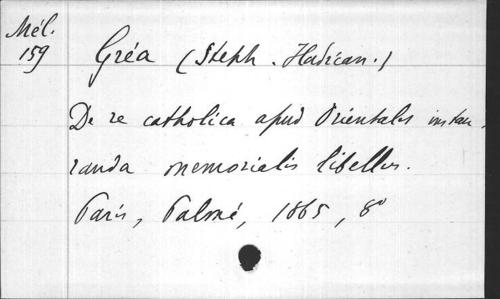 Mél.
159
Gréa (Steph. Hadrian.)
De re catholica apud Orientales instau-
randa memorialis libellus.
Paris, Palmé, 1865, 8°